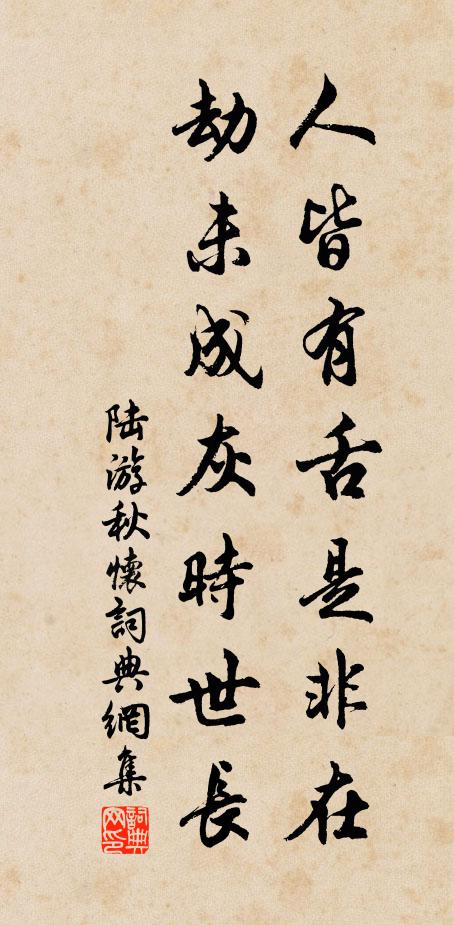 人皆有舌是非在
劫未成灰時世長
陸游秋懷詞典網集
詞典網印